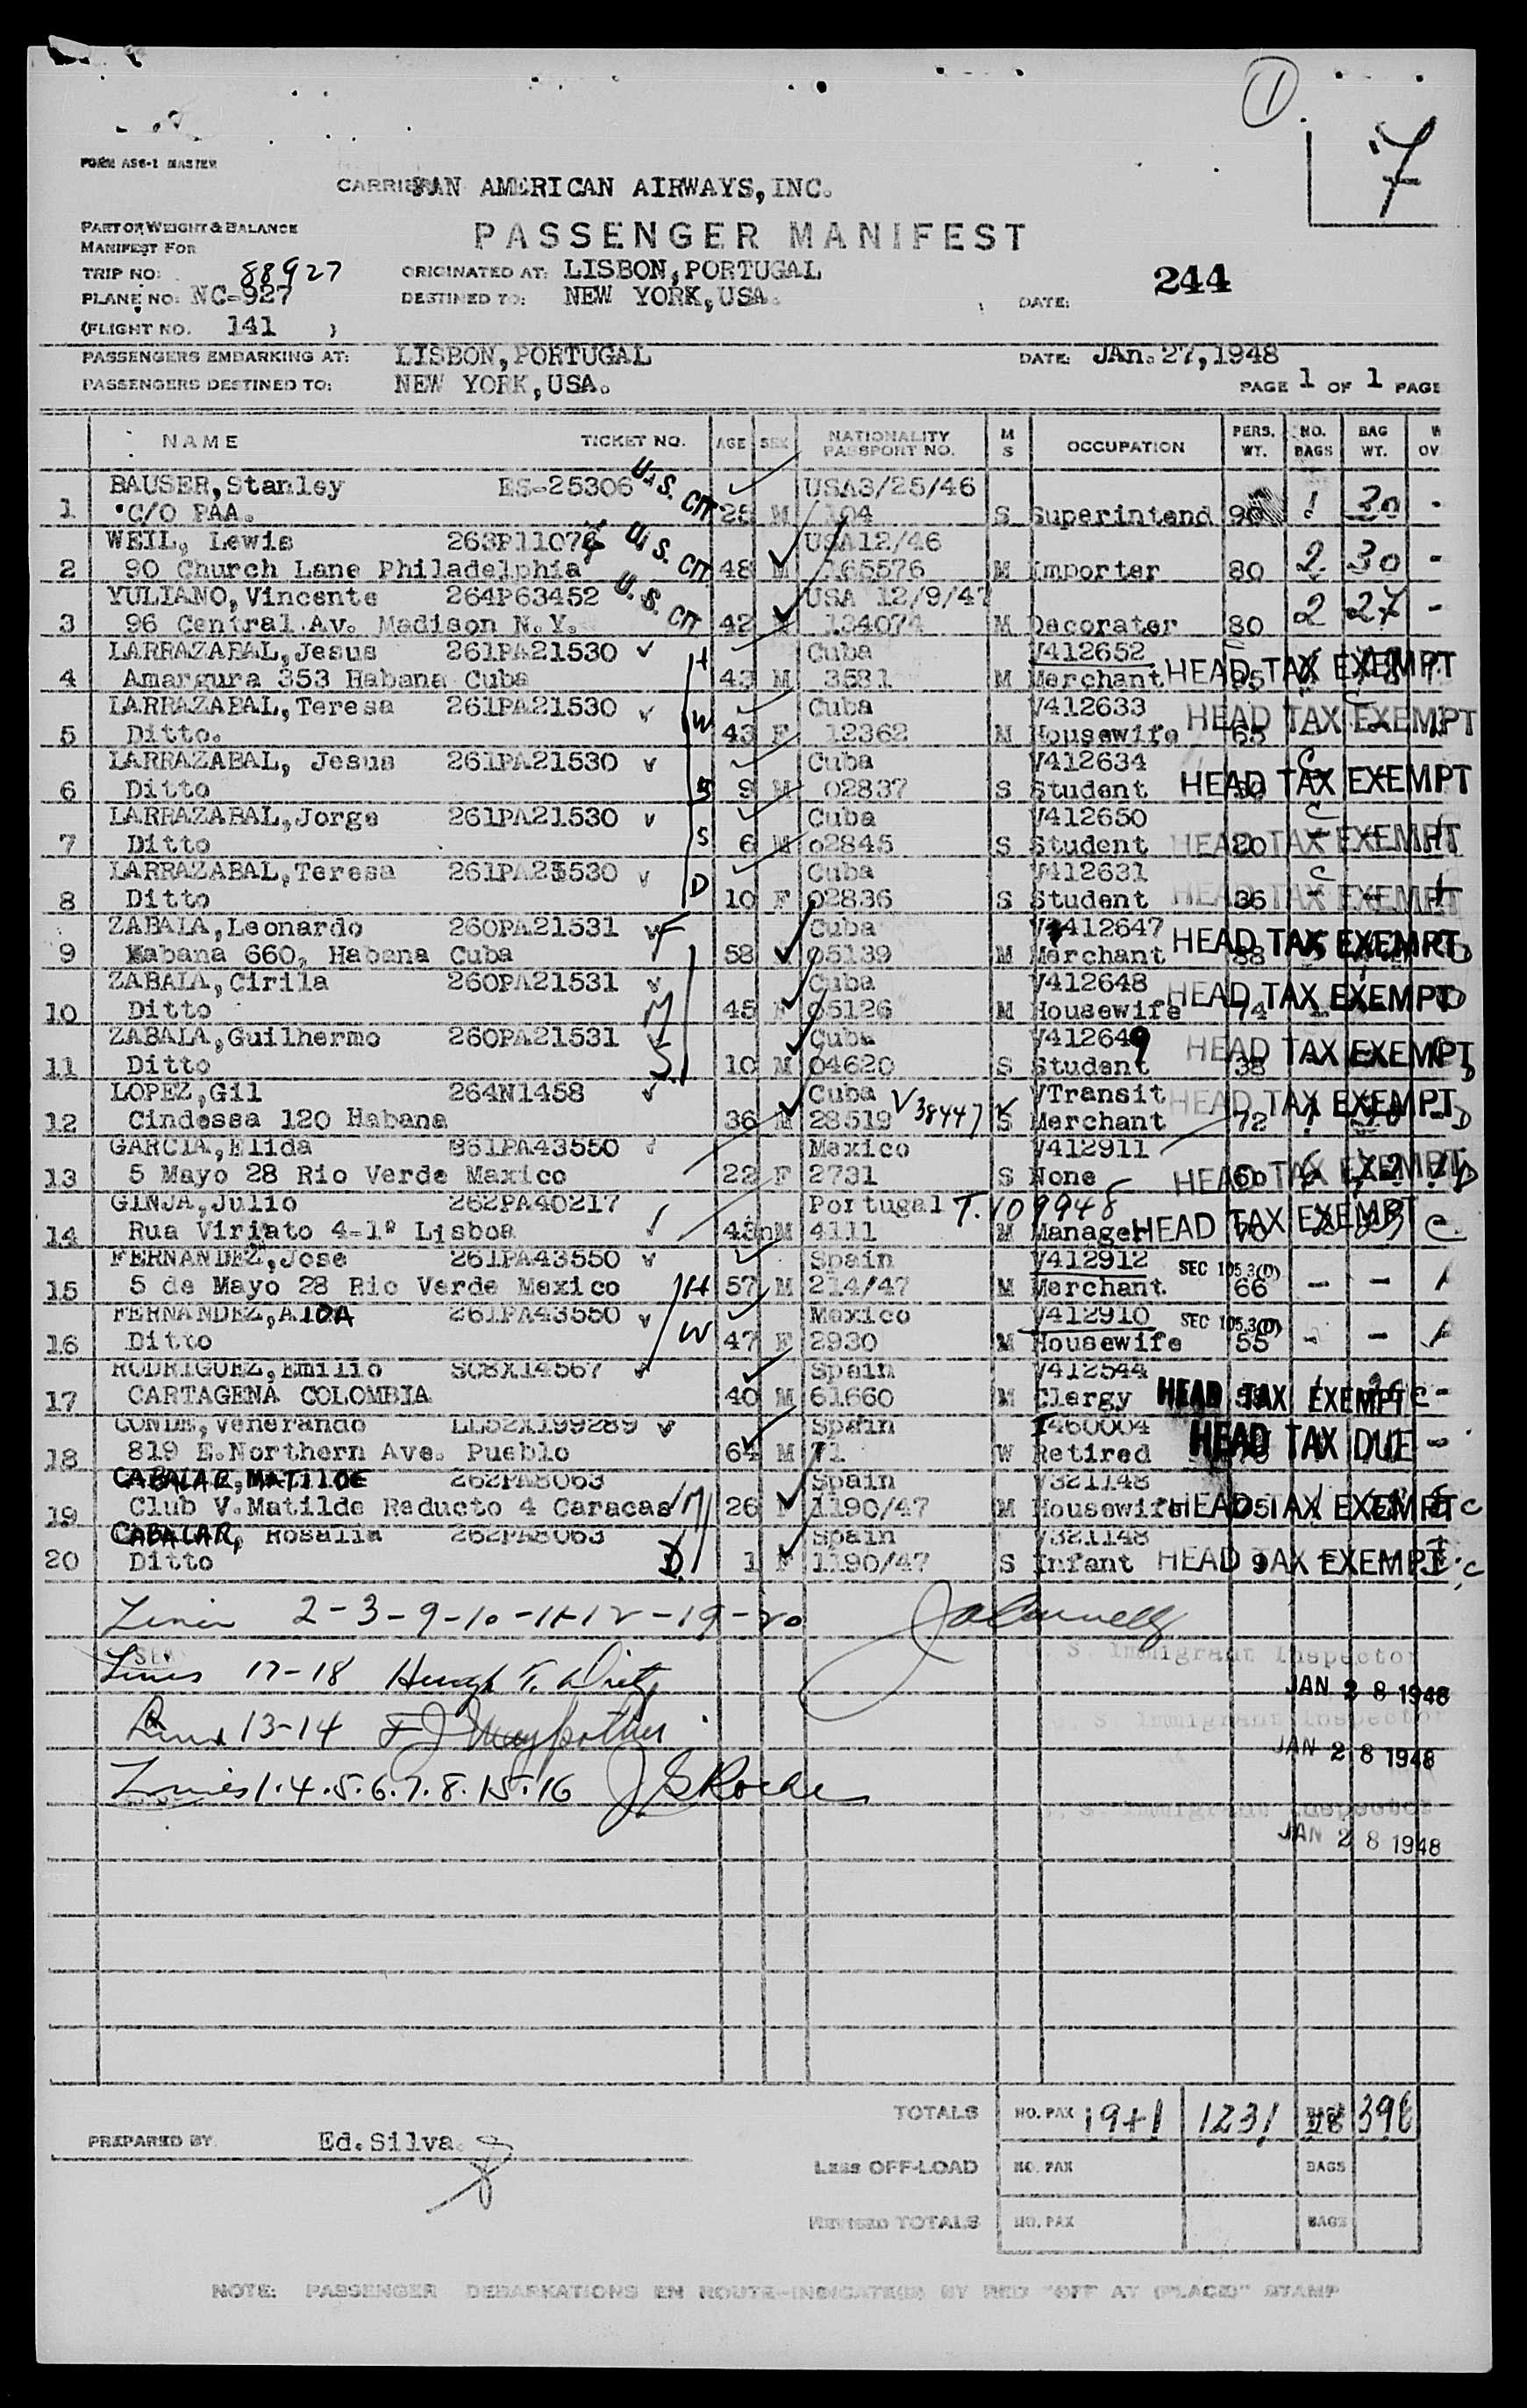 1
7
FORM AS6-1 MASTER
CARRIER PAN AMERICAN AIRWAYS, INC.
PART OF WEIGHT & BALANCE
MANIFEST FOR
PASSENGER MANIFEST
TRIP NO: 88927 ORIGINATED AT: LISBON, PORTUGAL
244
PLANE NO: NC-927 DESTINED TO: NEW YORK, USA. DATE:
(FLIGHT NO. 141 )
PASSENGERS EMBARKING AT: LISBON, PORTUGAL DATE: JAn. 27, 1948
PASSENGERS DESTINED TO: NEW YORK, USA. PAGE 1 OF 1 PAGE
NAME TICKET NO. AGE SEX NATIONALITY PASSPORT NO. M S OCCUPATION PERS. WT. NO. BAGS BAG WT. W OV
BAUSER, Stanley ES-25306 U.S. CIT USA3/25/46
1 C/O PAA. 28 M 104 S Superintend 90 1 30 -
WEIL, Lewis 263P11076 U.S. CIT. USA12/46
2 90 Church Lane Philadelphia 48 M 165576 M Importer 80 2 30 -
YULIANO, Vincente 264P63452 U.S. CIT USA 12/9/47
3 96 Central Av. Madison N.Y. 42 134074 M Decorater 80 2 27 -
LARRAZABAL, Jesus 261PA21530 H Cuba V412652
4 Amargura 353 Habana Cuba 43 M 3581 M Merchant HEAD TAX EXEMPT
LARRAZABAL, Teresa 261PA21530 W Cuba V412633
5 Ditto. 43 F 12362 M Housewife 65 HEAD TAX EXEMPT
LARRAZABAL, Jesus 261PA21530 Cuba V412634
6 Ditto S 9 M 02837 S Student HEAD TAX EXEMPT
LARRAZABAL, Jorge 261PA21530 Cuba V412650
7 Ditto S 6 M 02845 S Student 20 HEAD TAX EXEMPT
LARRAZABAL, Teresa 261PA21530 Cuba V412631
8 Ditto D 10 F 02836 S Student 36 HEAD TAX EXEMPT
ZABALA, Leonardo 260PA21531 F Cuba V412647
9 Habana 660, Habana Cuba 58 05139 M Merchant 88 HEAD TAX EXEMPT D
ZABALA, Cirila 260PA21531 Cuba V412648
10 Ditto M 45 F 05126 M Housewife 74 HEAD TAX EXEMPT D
ZABALA, Guilhermo 260PA21531 Cuba V412649
11 Ditto S 10 M 04620 S Student 38 HEAD TAX EXEMPT D
LOPEZ, Gil 264N1458 Cuba V38447 VTransit
12 Cindessa 120 Habana 36 M 28519 S Merchant 72 HEAD TAX EXEMPT D
GARCIA, Elida 361PA43550 Mexico V412911
13 5 Mayo 28 Rio Verde Maxico 22 F 2731 S None 60 HEAD TAX EXEMPT D
GINJA, Julio 262PA40217 Portugal T.109948
14 Rua Viriato 4-1º Lisboa 43 M 4111 M Manager 70 HEAD TAX EXEMPT C
FERNANDEZ, Jose 261PA43550 Spain V412912 SEC 105.3(D)
15 5 de Mayo 28 Rio Verde Mexico H 57 M 214/47 M Merchant 66 - -
FERNANDEZ, AIDA 261PA43550 Mexico V412910 SEC 105.3(D)
16 Ditto W 47 F 2930 M Housewife 55 - -
RODRIGUEZ, Emilio SCBX14567 Spain V412544
17 CARTAGENA COLOMBIA 40 M 61660 M Clergy HEAD TAX EXEMPT C -
CONDE, Venerando LL52X199289 Spain T460004
18 819 E. Northern Ave. Pueblo 64 M 71 W Retired HEAD TAX DUE -
CABALAR, MATILDE 262PA8063 Spain V321148
19 Club V. Matilde Reducto 4 Caracas M 26 F 1190/47 M Housewife HEAD TAX EXEMPT C
CABALAR, Rosalia 262PA8063 Spain V321148
20 Ditto D. 1 F 1190/47 S Infant 9 HEAD TAX EXEMPT C
Lines 2-3-9-10-11-12-19-20
U. S. Immigrant Inspector
Lines 17-18 Hugh T.
JAN 28 1948
Lines 13-14
U. S. Immigrant Inspector
JAN 28 1948
Lines 1.4.5.6.7.8.15.16 J G Roche
U. S. Immigrant Inspector
JAN 28 1948
TOTALS NO. PAX 19+1 1231 BAGS 28 396
PREPARED BY Ed. Silva.
Less OFF-LOAD NO. PAX BAGS
REVISED TOTALS NO. PAX BAGS
NOTE: PASSENGER DEBARKATIONS EN ROUTE-INDICATE(D) BY RED "OFF AT (PLACE)" STAMP